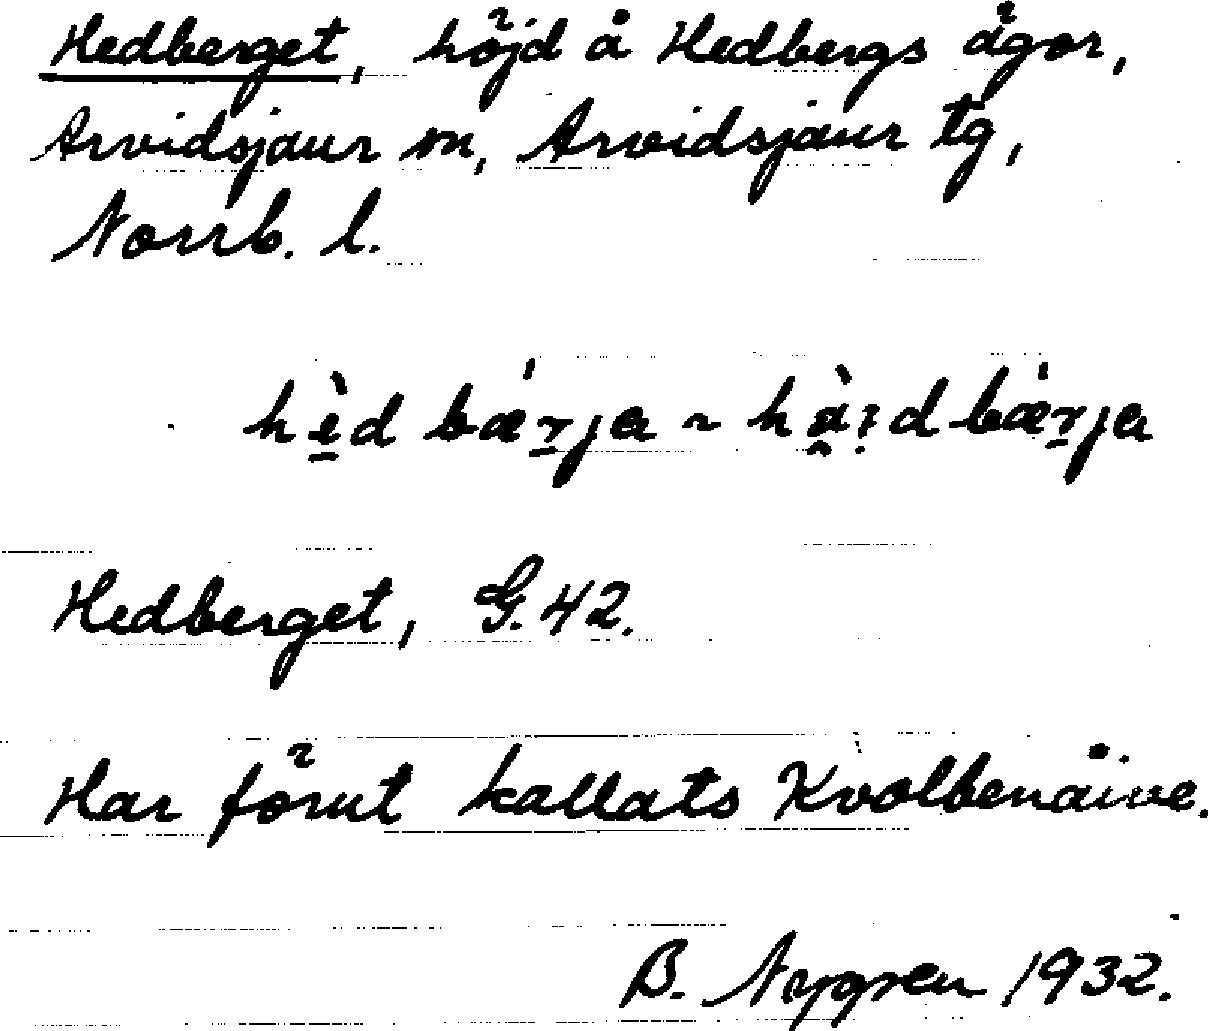 Hedberget, höjd å Hedbergs ägor,
Arvidsjaur sn, Arvidsjaur tg,
Norrb. l.
hè̱d bǽr̠ja ~ hä̀ɪd bǽr̠ja
Hedberget, G. 42.
Har förut kallats Kvolbenåive.
B. Nygren 1932.